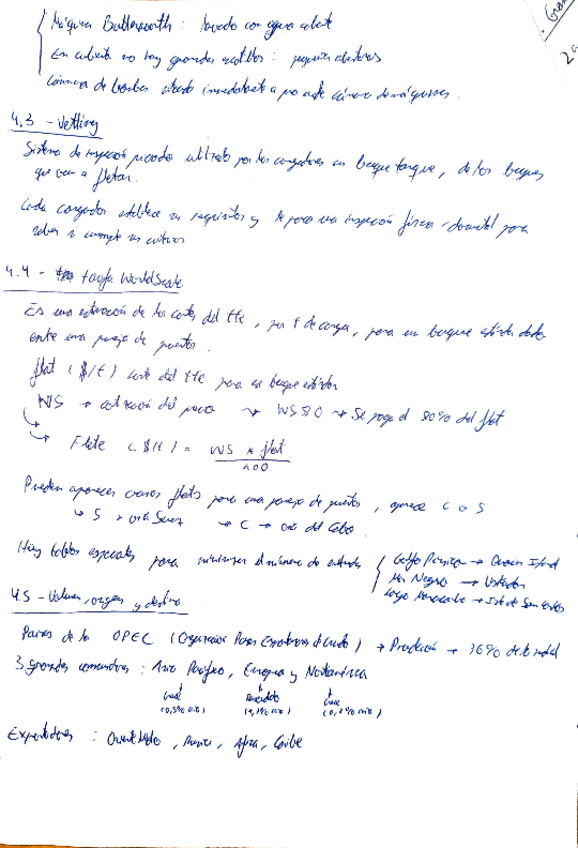 Máquina Butterworth : lavado con agua caliente
En cubierta no hay grandes escotillas : pequeñas aberturas
Cámara de bombas situada inmediatamente a proa de cámara de máquinas.
4.3 - Vetting
Sistema de inspección privado utilizado por los cargadores en buque tanque, de los buques
que van a fletar.
Cada cargador establece sus requisitos y se pasa una inspección física-documental para
saber si cumple sus criterios
4.4 - tarifa WorldScale
Es una estimación de los costes del tte, por t de carga, para un buque estándar dado
entre una pareja de puertos.
flat ($/t) coste del tte para un buque estándar
WS → cotización del WS 80 → Se paga el 80% del flat
Flete ($/t) = WS * flat
100
Pueden aparecer varios flats para una pareja de puertos, aparece C o S
S → vía Suez → C → vía del Cabo
Hay tablas especiales para minimizar el número de entradas
Golfo Pérsico → Quoin Island
Mar Negro →
Lago Maracaibo → Isla de San Carlos
4.5 - Volumen, origen y destino
Países de la OPEC (Organización Países Exportadores de Crudo) → Producción → 36% del total
3 grandes consumidores : Asia Pacífico, Europa y Norteamérica
Exportadores : Oriente Medio, África, Caribe